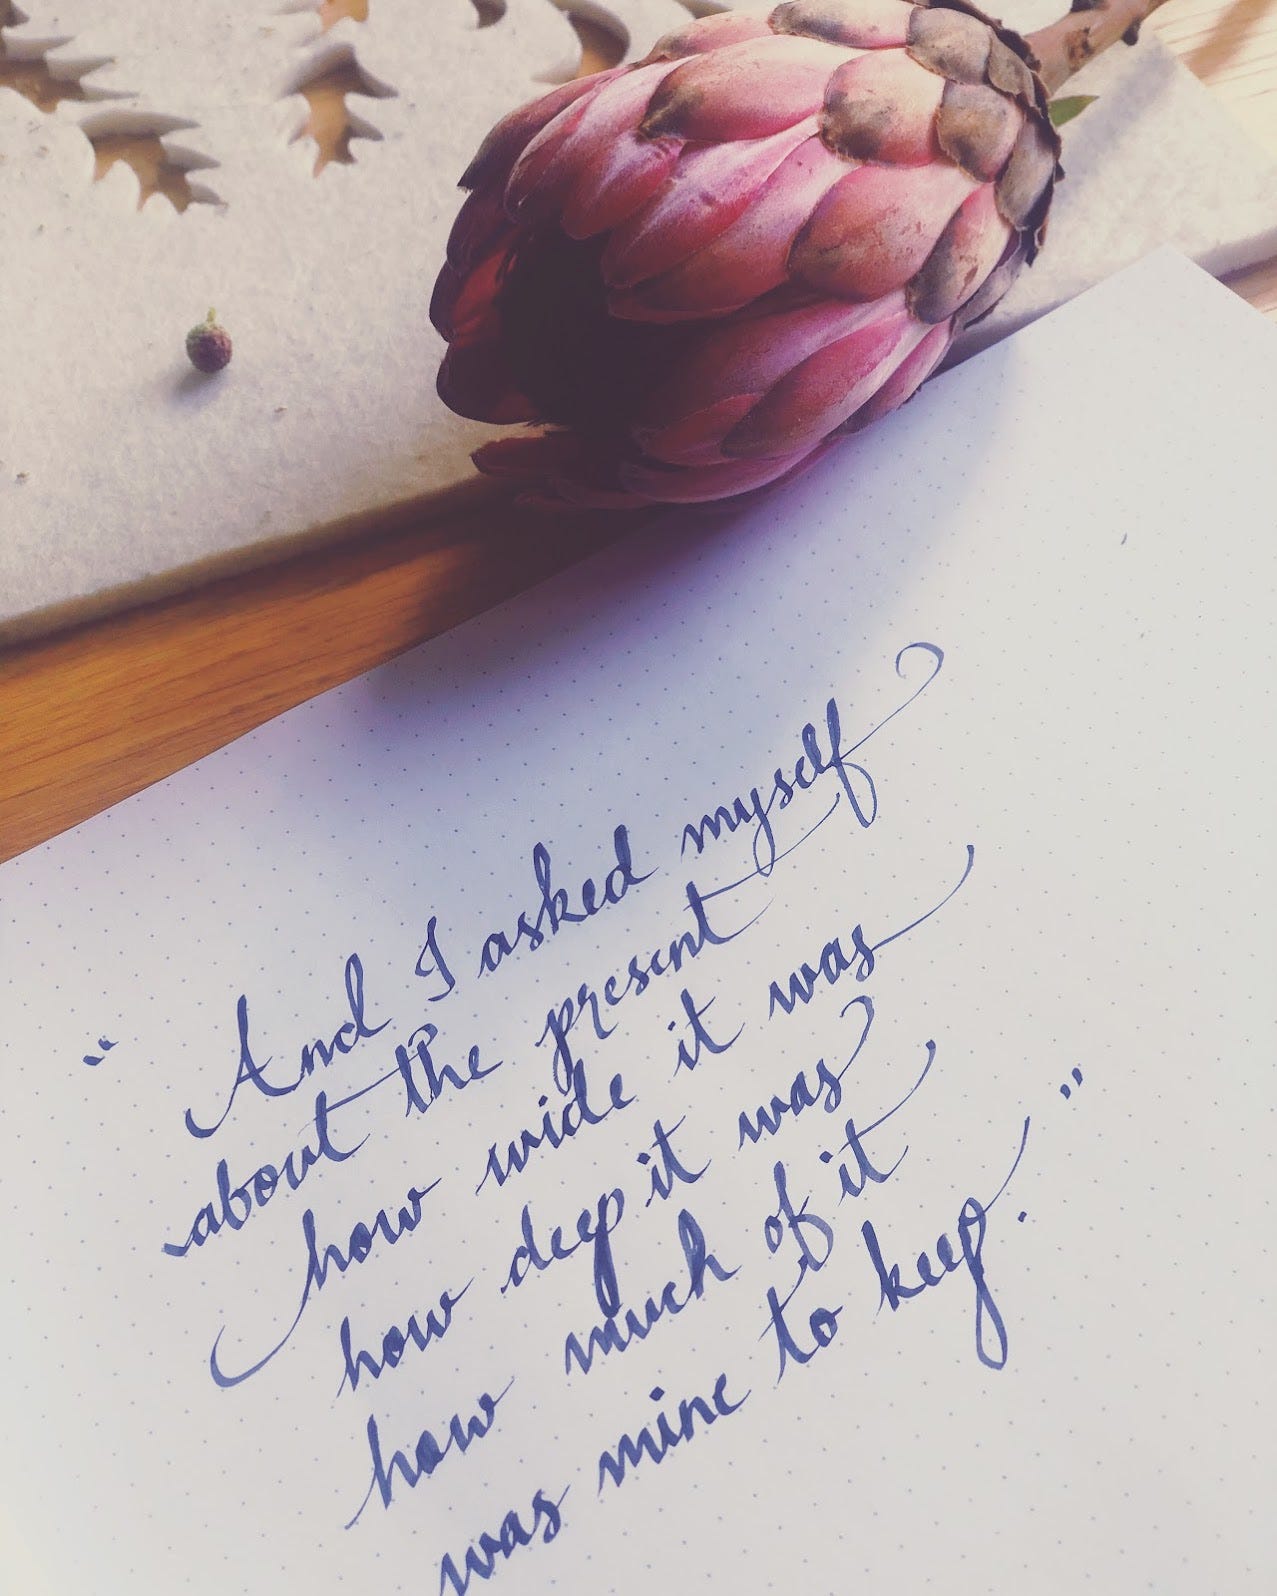 “ And I asked myself
about the present
how wide it was
how deep it was
how much of it
was mine to keep. ”